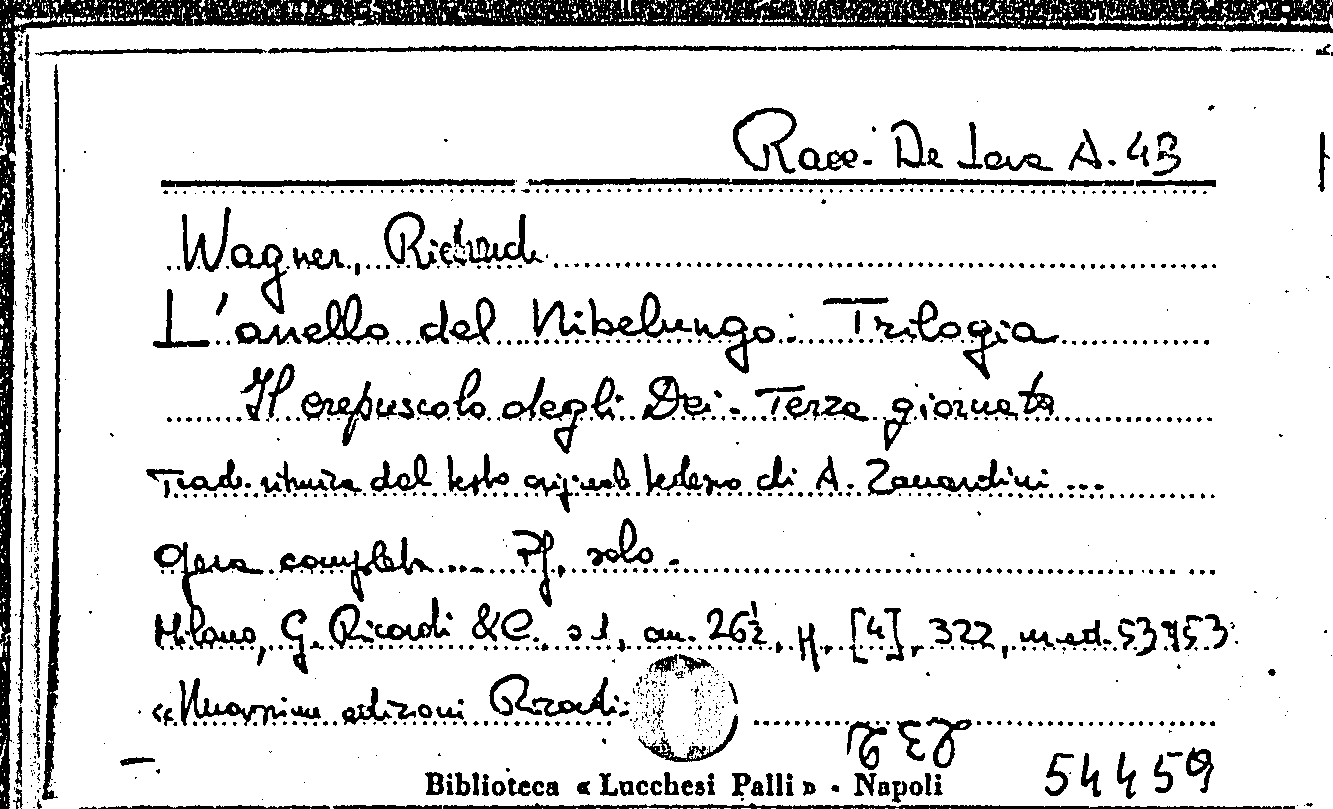 Racc. De Leva A. 43
Wagner, Richard
L'anello del Nibelungo. Trilogia
Il crepuscolo degli Dei - Terza giornata
Trad. ritmica dal testo originale tedesco di A. Zanardini ...
Opera completa ... Pf. solo.
Milano, G. Ricordi & C. s.d., cm. 26½, pp. [4], 322, n. ed. 53953
« Nuovissime edizioni Ricordi
Biblioteca « Lucchesi Palli » - Napoli
54459